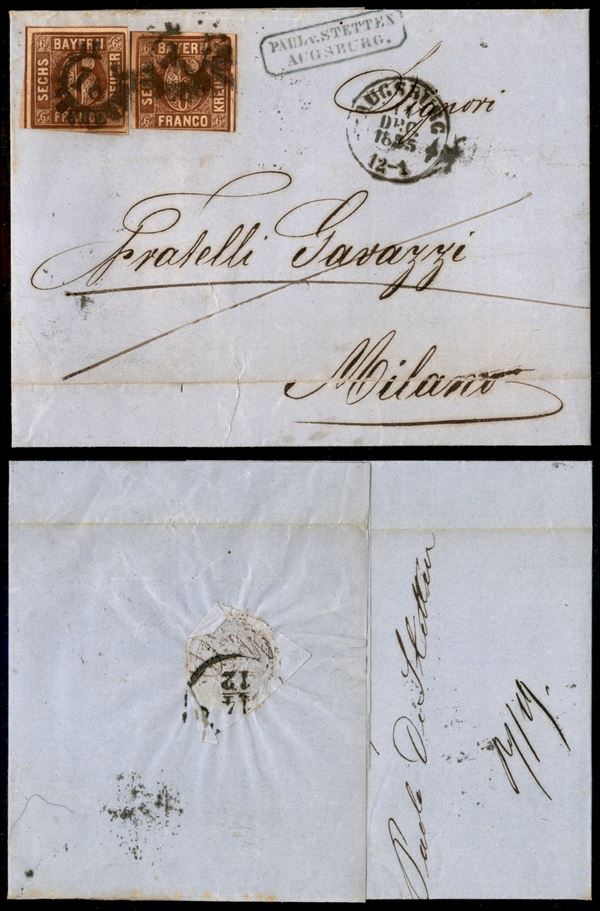 BAYERN
SECHS
KREUZER
FRANCO
6
BAYERN
SECHS
KREUZER
FRANCO
6
PAUL v. STETTEN
AUGSBURG.
AUGSBURG
DEC
1855
12-1
Signori
Fratelli Gavazzi
Milano
12
Paolo De Stetten